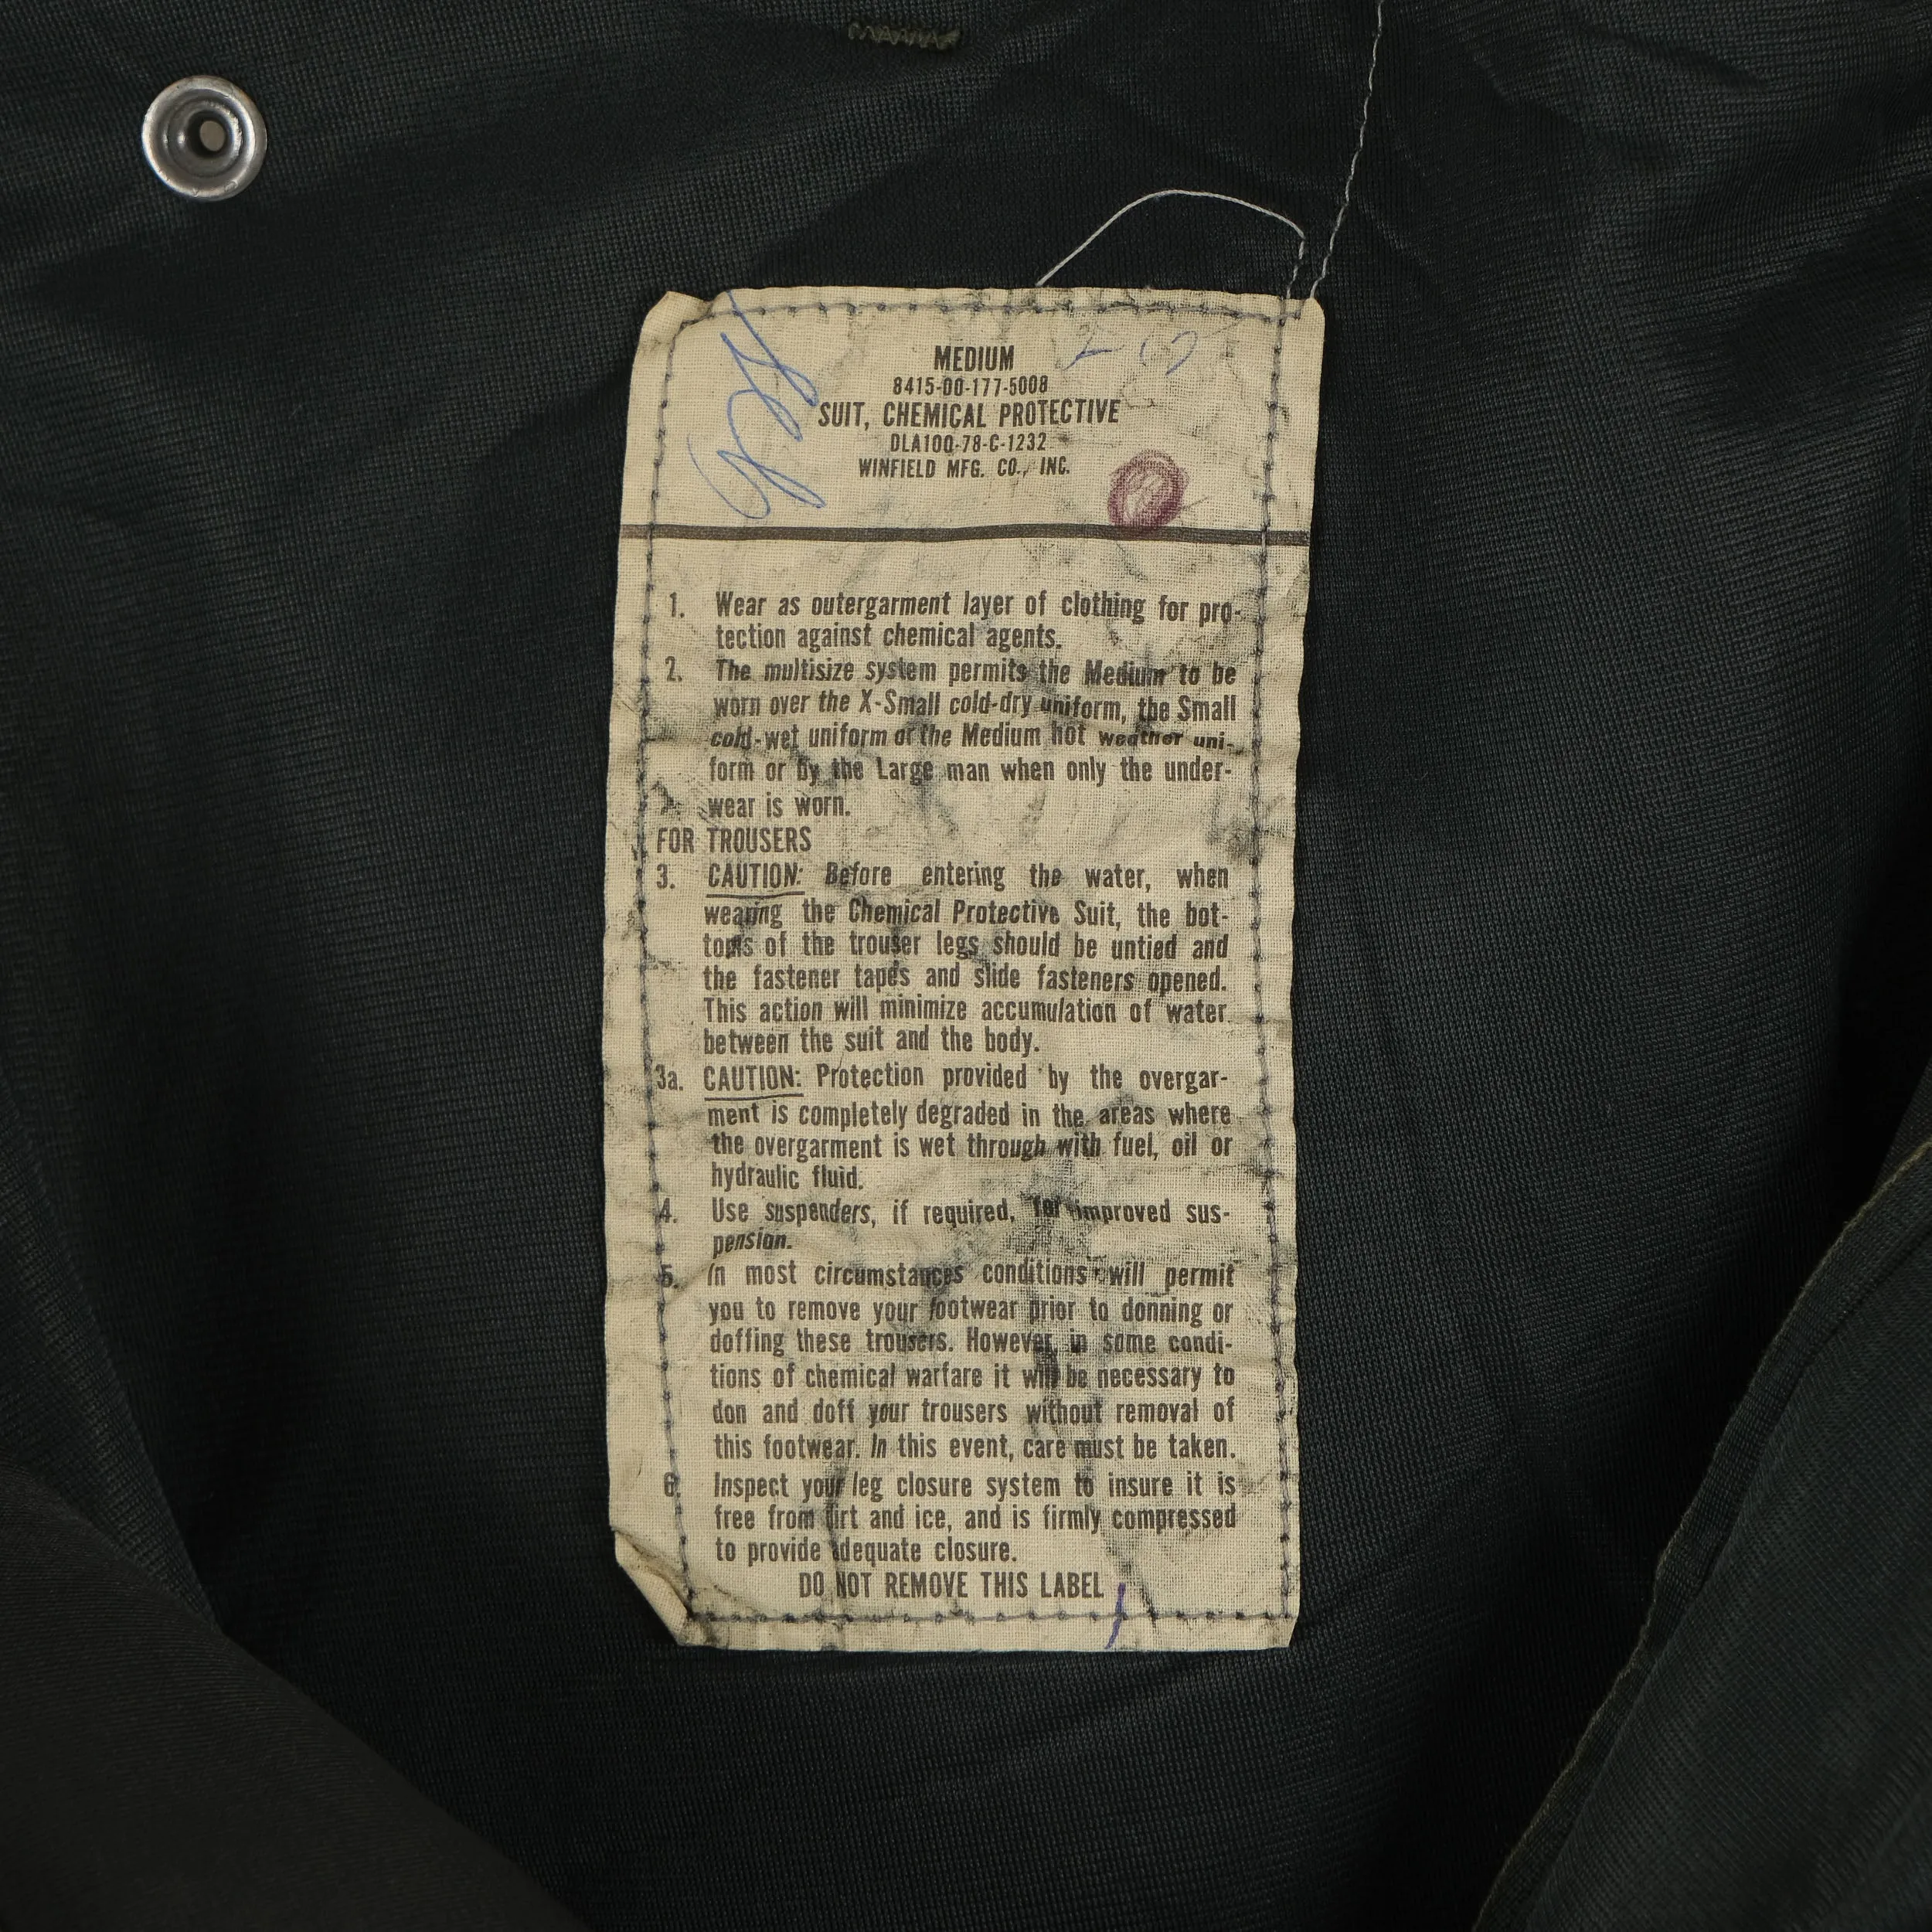 MEDIUM
8415-00-177-5008
SUIT, CHEMICAL PROTECTIVE
DLA100-78-C-1232
WINFIELD MFG. CO., INC.
1. Wear as outergarment layer of clothing for pro-
tection against chemical agents.
2. The multisize system permits the Medium to be
worn over the X-Small cold-dry uniform, the Small
cold-wet uniform or the Medium hot weather uni-
form or by the Large man when only the under-
wear is worn.
FOR TROUSERS
3. CAUTION: Before entering the water, when
wearing the Chemical Protective Suit, the bot-
toms of the trouser legs should be untied and
the fastener tapes and slide fasteners opened.
This action will minimize accumulation of water
between the suit and the body.
3a. CAUTION: Protection provided by the overgar-
ment is completely degraded in the areas where
the overgarment is wet through with fuel, oil or
hydraulic fluid.
4. Use suspenders, if required, for improved sus-
pension.
5. In most circumstances conditions will permit
you to remove your footwear prior to donning or
doffing these trousers. However, in some condi-
tions of chemical warfare it will be necessary to
don and doff your trousers without removal of
this footwear. In this event, care must be taken.
6. Inspect your leg closure system to insure it is
free from dirt and ice, and is firmly compressed
to provide adequate closure.
DO NOT REMOVE THIS LABEL